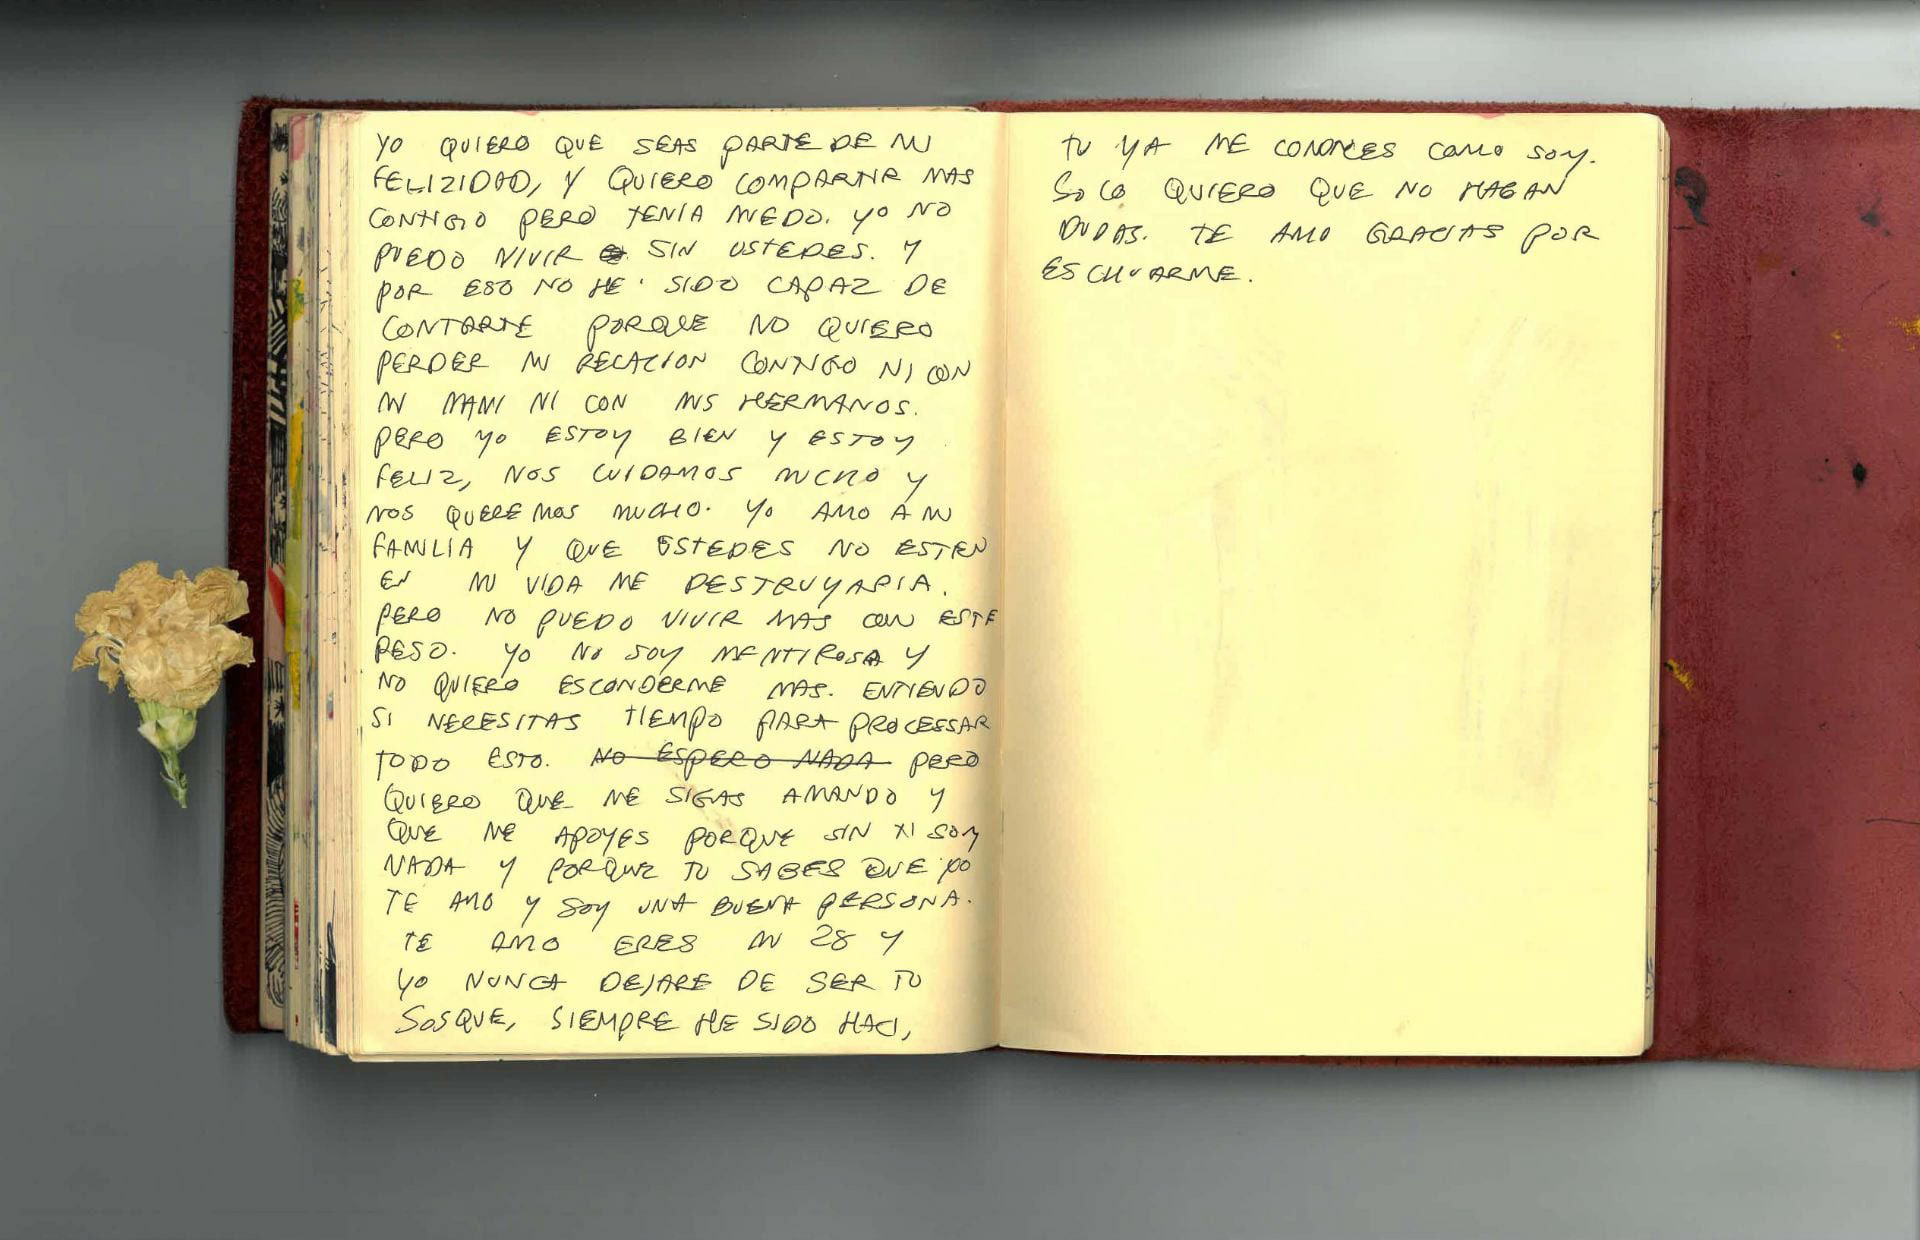 YO QUIERO QUE SEAS PARTE DE MI
FELIZIDAD, Y QUIERO COMPARTIR MAS
CONTIGO PERO TENIA MIEDO. YO NO
PUEDO VIVIR SIN USTEDES. Y
POR ESO NO HE SIDO CAPAZ DE
CONTARTE PORQUE NO QUIERO
PERDER MI RELACION CONTIGO NI CON
MI MAMI NI CON MIS HERMANOS.
PERO YO ESTOY BIEN Y ESTOY
FELIZ, NOS CUIDAMOS MUCHO Y
NOS QUEREMOS MUCHO. YO AMO A MI
FAMILIA Y QUE USTEDES NO ESTEN
EN MI VIDA ME DESTRUYARIA.
PERO NO PUEDO VIVIR MAS CON ESTE
PESO. YO NO SOY MENTIROSA Y
NO QUIERO ESCONDERME MAS. ENTIENDO
SI NECESITAS TIEMPO PARA PROCESSAR
TODO ESTO. NO ESPERO NADA PERO
QUIERO QUE ME SIGAS AMANDO Y
QUE ME APOYES PORQUE SIN TI SOY
NADA Y PORQUE TU SABES QUE YO
TE AMO Y SOY UNA BUENA PERSONA.
TE AMO ERES MI 28 Y
YO NUNCA DEJARE DE SER TU
SOSQUE, SIEMPRE HE SIDO HACI,
TU YA ME CONOCES COMO SOY.
SOLO QUIERO QUE NO HAGAN
DUDAS. TE AMO GRACIAS POR
ESCHUARME.